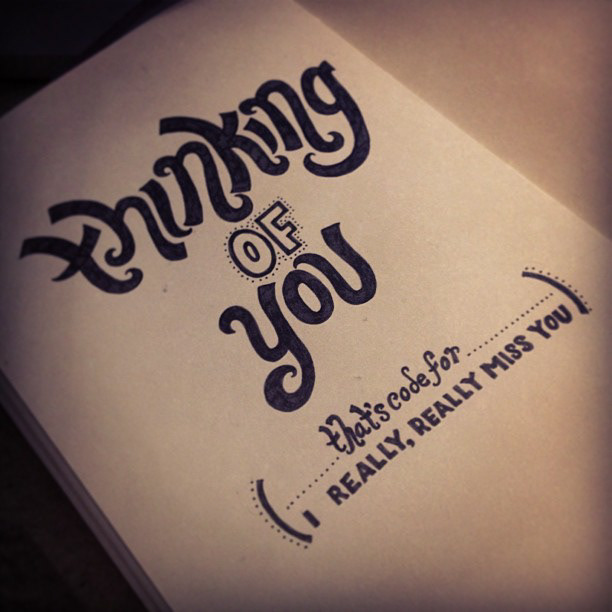 thinking
OF
you
that's code for
(I REALLY, REALLY MISS YOU)